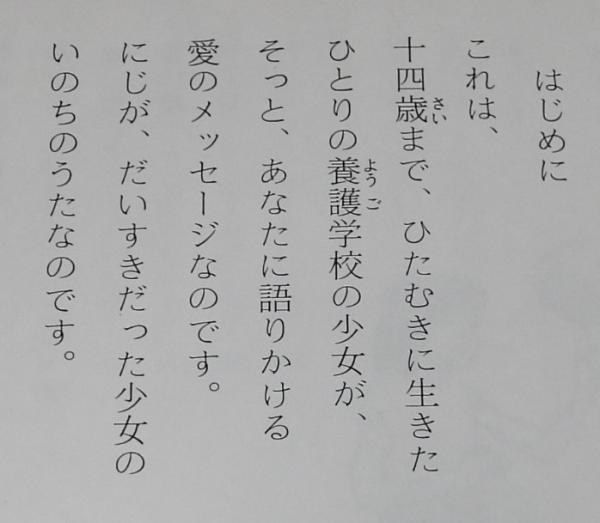 はじめに
これは、
十四歳まで、ひたむきに生きた
ひとりの養護学校の少女が、
そっと、あなたに語りかける
愛のメッセージなのです。
にじが、だいすきだった少女の
いのちのうたなのです。